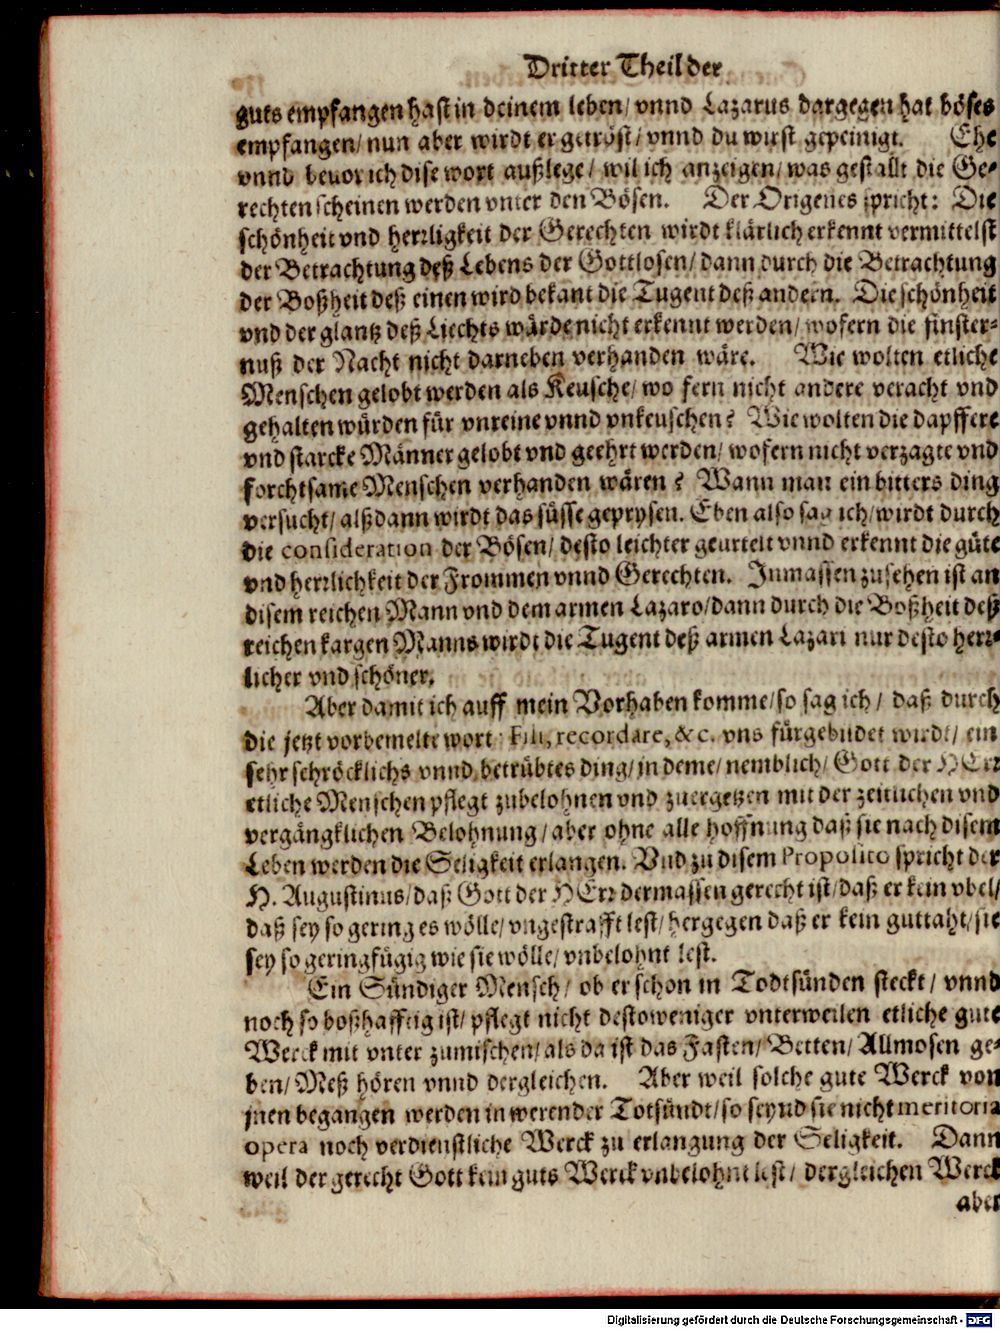 Dritter Theil der
guts empfangen hast in deinem leben/ vnnd Lazarus dargegen hat böses
empfangen/ nun aber wirdt er getröst/ vnnd du wirst gepeinigt. Ehe
vnnd beuor ich dise wort außlege/ wil ich anzeigen/ was gestallt die Ge-
rechten scheinen werden vnter den Bösen. Der Origenes spricht: Die
schönheit vnd herrligkeit der Gerechten wirdt klärlich erkennt vermittelst
der Betrachtung deß Lebens der Gottlosen/ dann durch die Betrachtung
der Boßheit deß einen wird bekant die Tugent deß andern. Die schönheit
vnd der glantz deß Liechts würde nicht erkennt werden/ wofern die finster-
nuß der Nacht nicht darneben verhanden wäre. Wie wolten etliche
Menschen gelobt werden als Keusche/ wo fern nicht andere veracht vnd
gehalten würden für vnreine vnnd vnkeuschen? Wie wolten die dapffere
vnd starcke Männer gelobt vnd geehrt werden/ wofern nicht verzagte vnd
forchtsame Menschen verhanden wären? Wann man ein bitters ding
versucht/ alßdann wirdt das süsse geprysen. Eben also sag ich/ wirdt durch
die consideration der Bösen/ desto leichter geurtelt vnnd erkennt die güte
vnd herrlichkeit der Frommen vnnd Gerechten. Inmassen zusehen ist an
disem reichen Mann vnd dem armen Lazaro/ dann durch die Boßheit deß
reichen kargen Manns wirdt die Tugent deß armen Lazari nur desto herr-
licher vnd schöner.
Aber damit ich auff mein Vorhaben komme/ so sag ich/ daß durch
die jetzt vorbemelte wort: Fili, recordare, &c. vns fürgebildet wirdt/ ein
sehr schröcklichs vnnd betrübtes ding/ in deme/ nemblich/ Gott der HErr
etliche Menschen pflegt zubelohnen vnd zuergetzen mit der zeitlichen vnd
vergängklichen Belohnung/ aber ohne alle hoffnung daß sie nach disem
Leben werden die Seligkeit erlangen. Vnd zu disem Proposito spricht der
H. Augustinus/ daß Gott der HErr dermassen gerecht ist/ daß er kein vbel/
daß sey so gering es wölle/ vngestrafft lest/ hergegen daß er kein guttaht/ sie
sey so geringfügig wie sie wölle/ vnbelohnt lest.
Ein Sündiger Mensch/ ob er schon in Todtsünden steckt/ vnnd
noch so boßhafftig ist/ pflegt nicht destoweniger vnterweilen etliche gute
Werck mit vnter zumischen/ als da ist das Fasten/ Betten/ Allmosen ge-
ben/ Meß hören vnnd dergleichen. Aber weil solche gute Werck von
jnen begangen werden in werender Totsündt/ so seynd sie nicht meritoria
opera noch verdienstliche Werck zu erlangung der Seligkeit. Dann
weil der gerecht Gott kein guts Werck vnbelohnt lest/ dergleichen Werck
aber
Digitalisierung gefördert durch die Deutsche Forschungsgemeinschaft - DFG